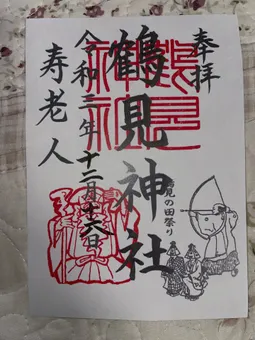 奉拝
鶴見神社
令和三年十二月十六日
寿老人
鶴見
神社
見の田祭り